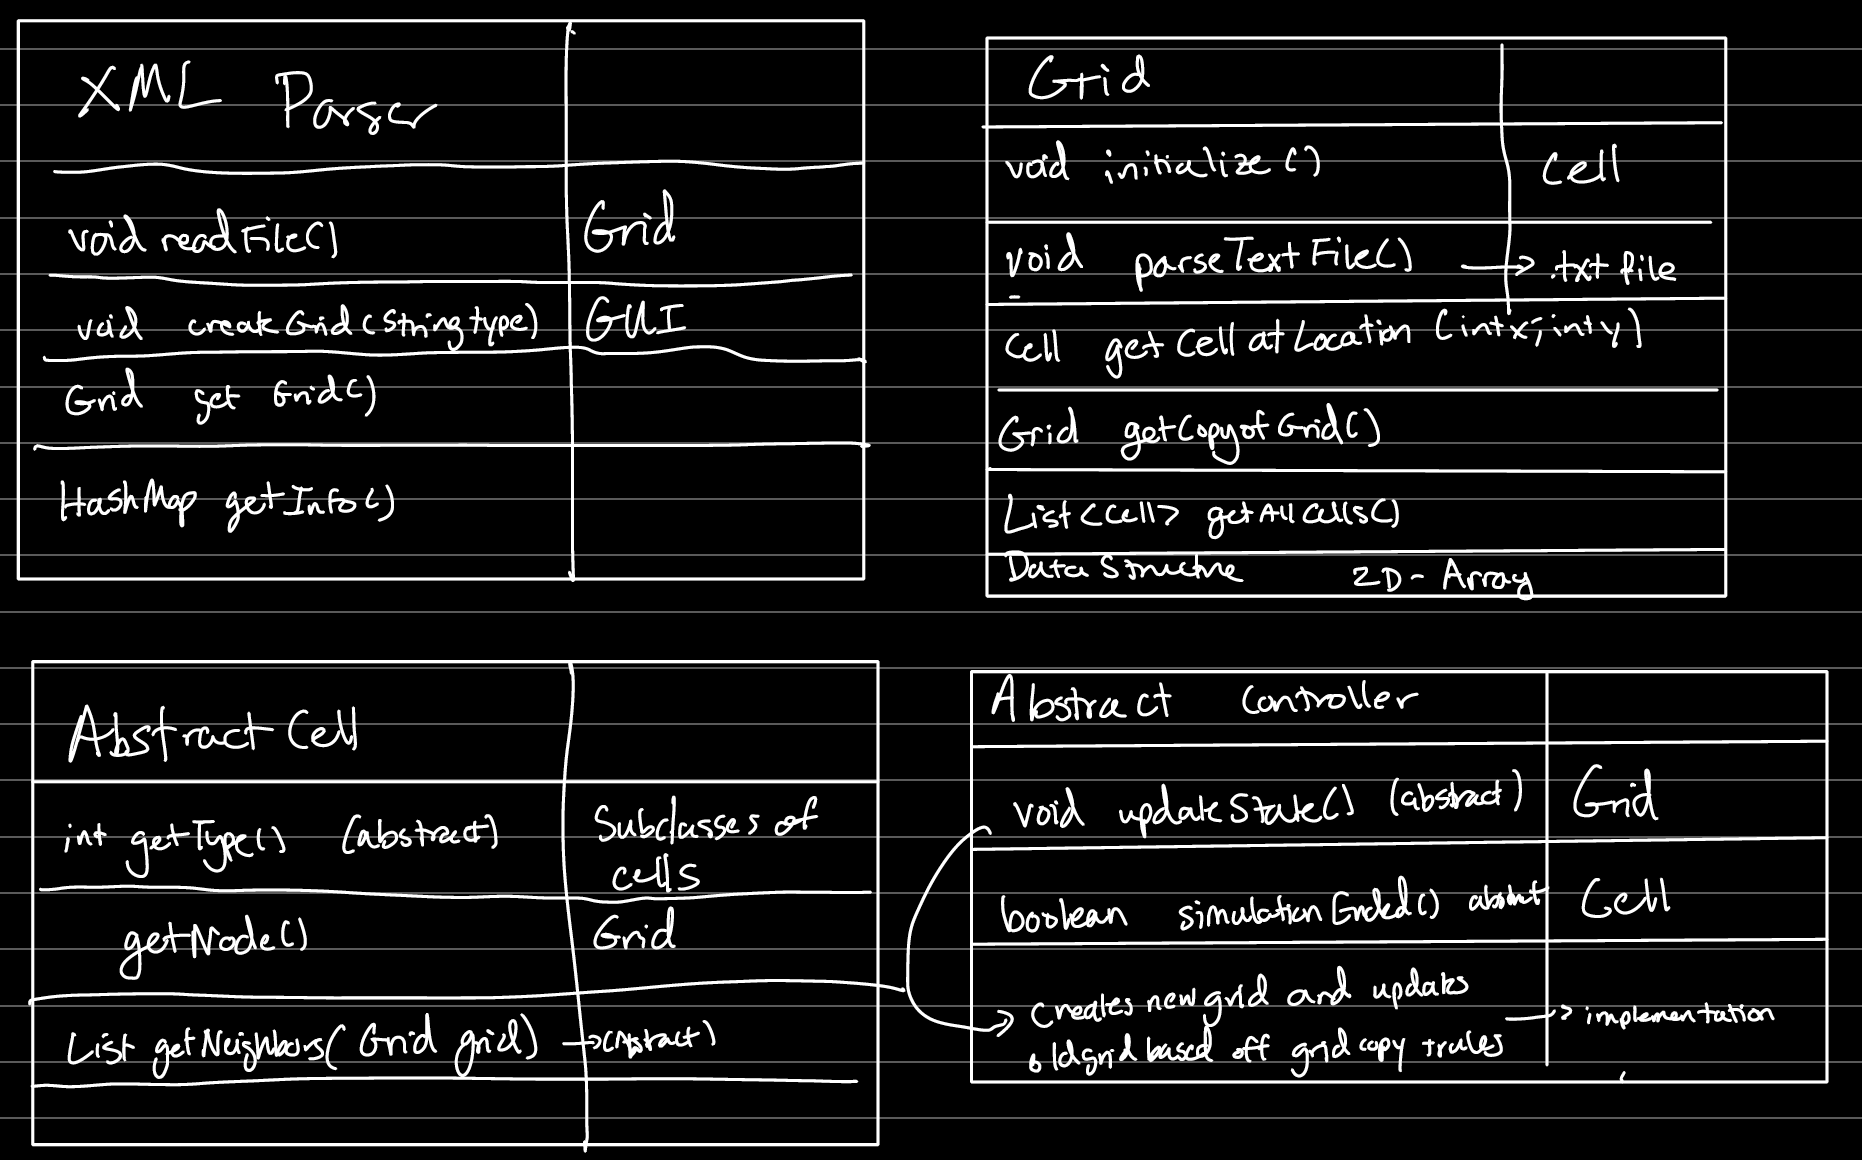 XML Parser
void readFile()
Grid
void createGrid(String type)
GUI
Grid get Grid()
HashMap getInfo()
Grid
void initialize()
Cell
void parseTextFile() → .txt file
Cell getCellatLocation (int x, int y)
Grid getCopyofGrid()
List<Cell> getAllCells()
Data Structure 2D-Array
Abstract Cell
int getType() (abstract)
Subclasses of
cells
getNode()
Grid
List getNeighbors(Grid grid) → (Abstract)
Abstract Controller
void updateState() (abstract)
Grid
boolean simulationEnded() abstract
Cell
→ Creates new grid and updates
old grid based off grid copy + rules
→ implementation